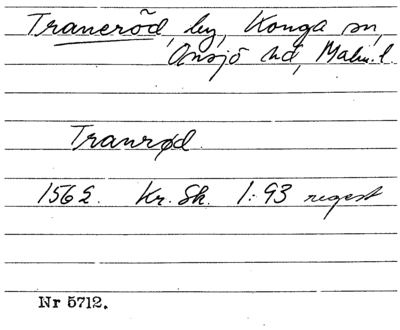 Traneröd, by, Konga sn,
Onsjö hd, Malm. l.
Tranrød.
1562. Kr. Sk. 1:93 regest
Nr 5712.